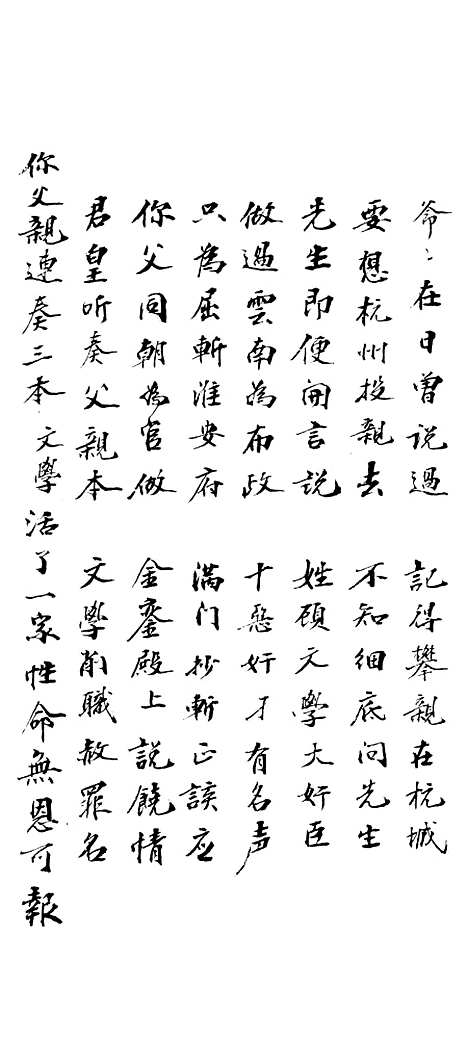 爺〻在日曾説過 記得攀親在杭城
要想杭州投親去 不知细底问先生
先生即便開言説 姓顾文學大奸臣
做過雲南為布政 十惡奸才有名声
只為屈斬淮安府 满门抄斬正該应
你父同朝為官做 金鑾殿上說饒情
君皇听奏父親本 文學削職赦罪名
你父親連奏三本 文學活了一家性命無恩可報